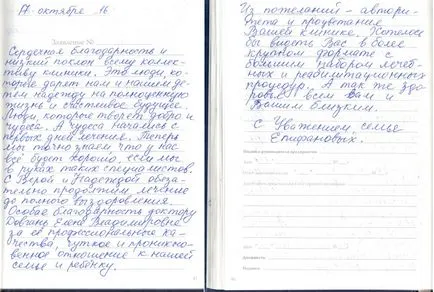 октября 16
Заявление №
Сердечная благодарность и
низкий поклон всему коллек-
тиву клиники. Это люди, ко-
торые дарят нам и нашим де-
тям надежду на полноценную
жизнь и счастливое будущее.
Люди, которые творят добро и
чудеса. А чудеса начались с
первых дней лечения. Теперь
мы точно знаем что у нас
всё будет хорошо, если мы
в руках таких специалистов.
С Верой и Надеждой обяза-
тельно продолжим лечение
до полного выздоровления.
Особая благодарность доктору
Довгань Елене Владимировне
за её профессиональные ка-
чества, чуткое и проникно-
венное отношение к нашей
семье и ребёнку.
Из пожеланий - автори-
тета и процветания
Вашей клинике. Хотелось
бы видеть Вас в более
крупном формате с
большим набором лечеб-
ных и реабилитационных
процедур. А так же здо-
ровья всем Вам и
Вашим близким.
С Уважением семья
Епифановых.